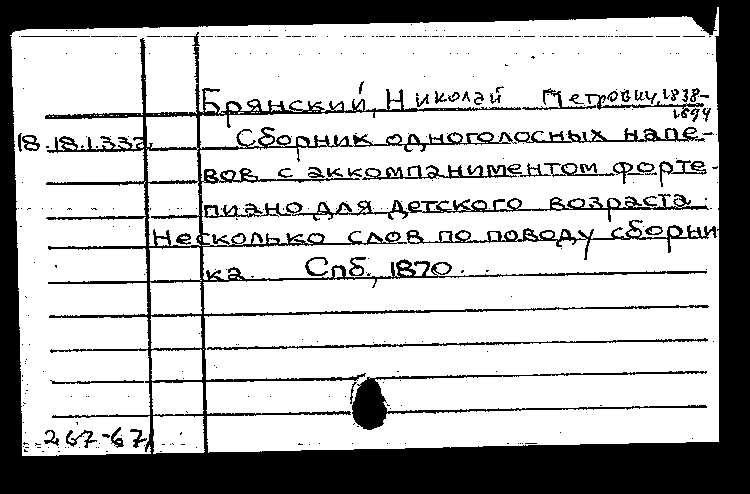 Брянский, Николай Петрович, 1838-
1894
18.18.1.332. Сборник одноголосных напе-
вов с аккомпаниментом форте-
пиано для детского возраста.
Несколько слов по поводу сборни
ка. Спб., 1870.
267-67